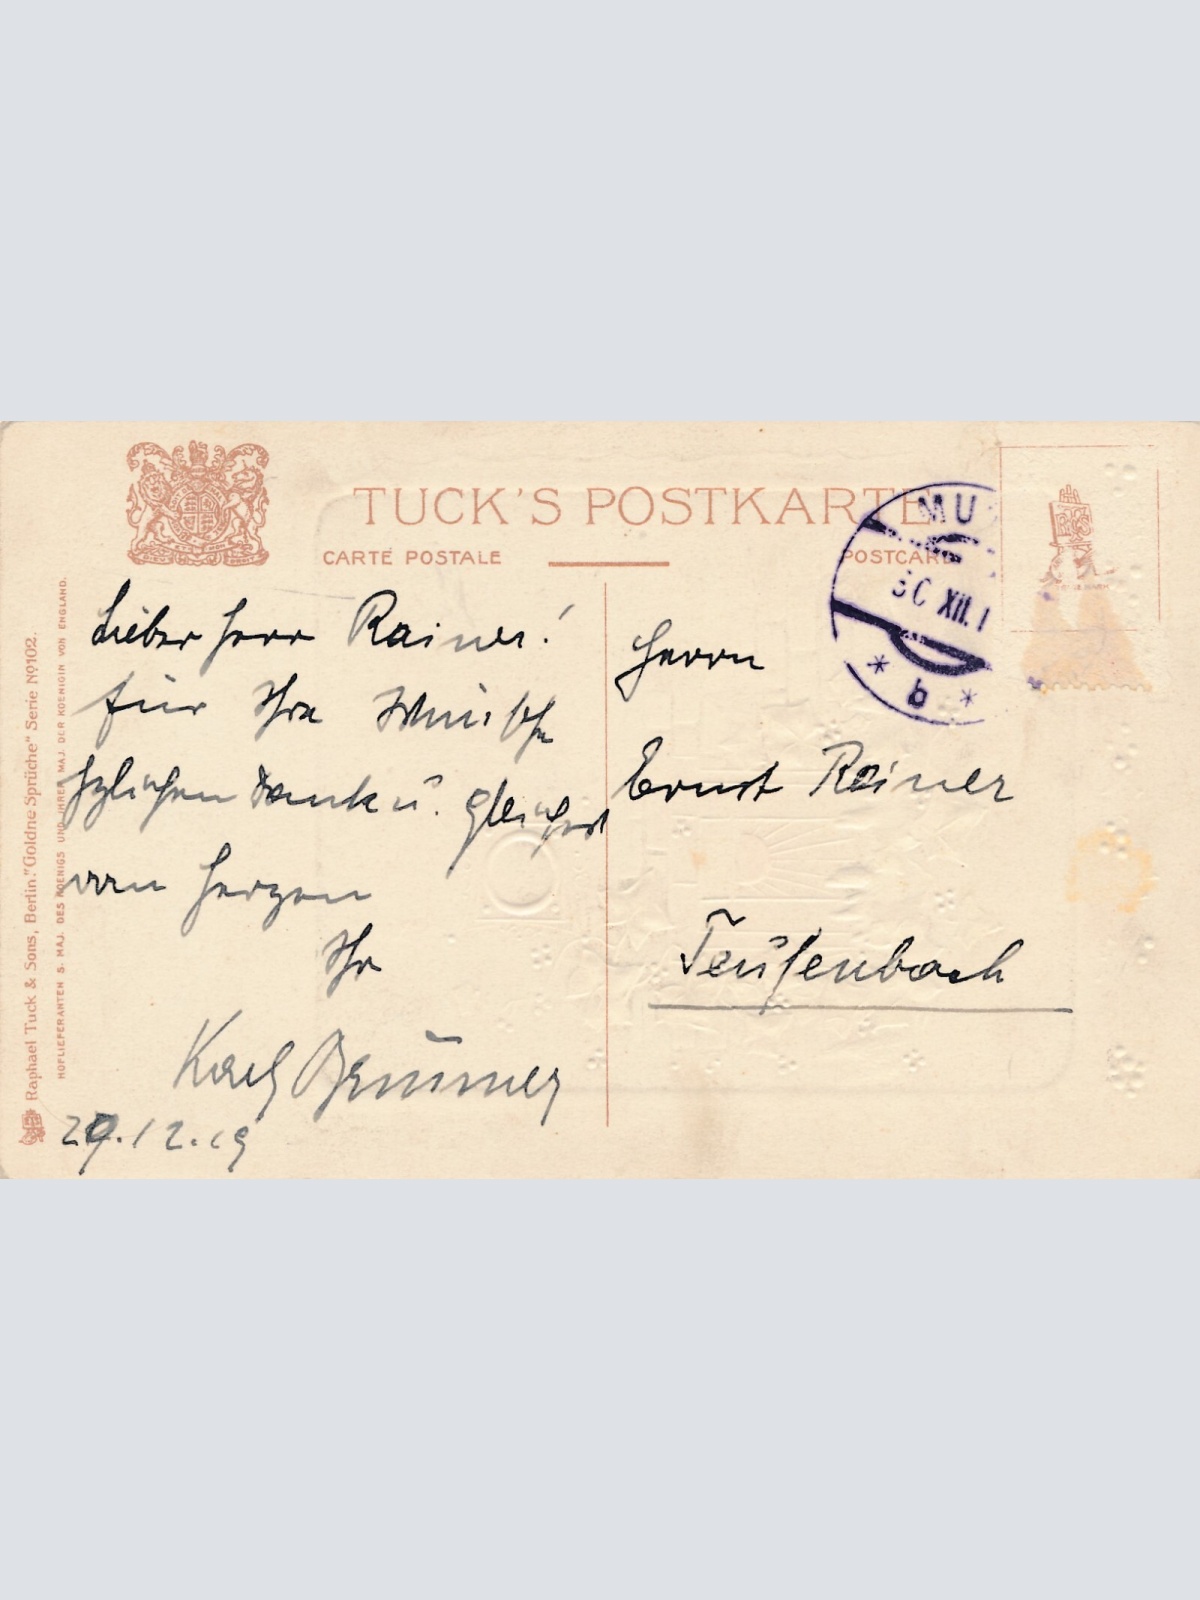 TUCK'S POSTKARTE
CARTE POSTALE
POSTCARD
MU
30 XII. 1
* b *
Lieber Herr Rainer!
für Ihre Wünsche
hzlichen Dank u. gleichfalls
von Herzen
Ihr
Karl
29.12.19
Herrn
Ernst Rainer
Teufenbach
Raphael Tuck & Sons, Berlin. "Goldne Sprüche" Serie No 102.
HOFLIEFERANTEN S. MAJ. DES KOENIGS UND IHRER MAJ. DER KOENIGIN VON ENGLAND.